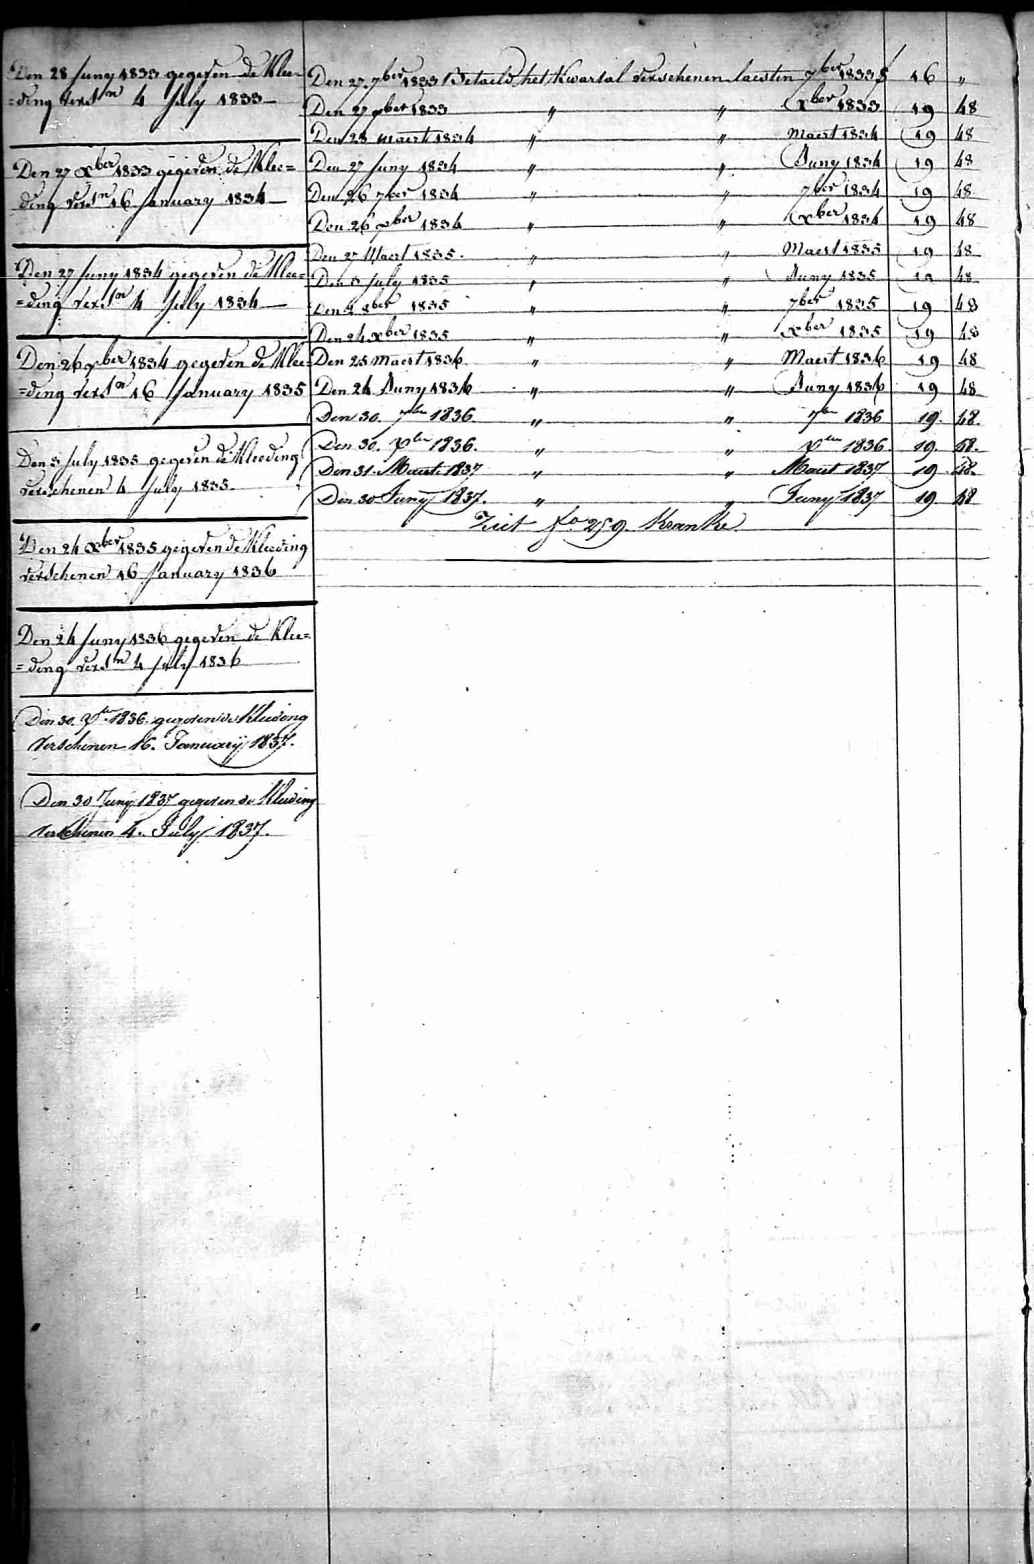 Den 28 Juny 1833 gegeven de Klee-
=ding versn 4 July 1833
Den 27 Xber 1833 gegeven de Klee=
ding versn 16 January 1834
Den 27 Juny 1834 gegeven de Klee=
=ding versn 4 July 1834
Den 26 Xber 1834 gegeven de Klee-
=ding versn 16 January 1835
Den 3 July 1835 gegeven de Kleeding
verschenen 4 July 1835
Den 24 Xber 1835 gegeven de Kleeding
verschenen 16 January 1836
Den 24 Juny 1836 gegeven de Klee=
=ding versn 4 July 1836
Den 30. Xber 1836. gegeven de Kleeding
verschenen 16. January 1837.
Den 30 Juny 1837 gegeven de Kleeding
verschenen 4. July 1837.
Den 27 7ber 1833 Betaeld het Kwartal verschenen laesten 7ber 1833 f 16 "
Den 27 Xber 1833 " " Xber 1833 19 48
Den 28 Maert 1834 " " Maert 1834 19 48
Den 27 Juny 1834 " " Juny 1834 19 48
Den 26 7ber 1834 " " 7ber 1834 19 48
Den 26 Xber 1834 " " Xber 1834 19 48
Den 27 Maert 1835. " " Maert 1835 19 48
Den 3 July 1835 " " Juny 1835 19 48
Den 2 8ber 1835 " " 7ber 1835 19 48
Den 24 Xber 1835 " " Xber 1835 19 48
Den 25 Maert 1836 " " Maert 1836 19 48
Den 24 Juny 1836 " " Juny 1836 19 48
Den 30. 7ber 1836. " " 7ber 1836 19. 48.
Den 30. Xber 1836. " " Xber 1836 19. 48.
Den 31. Maert 1837 " " Maert 1837 19 48.
Den 30 Juny 1837. " " Juny 1837 19 48
Ziet fo 259. Kranke